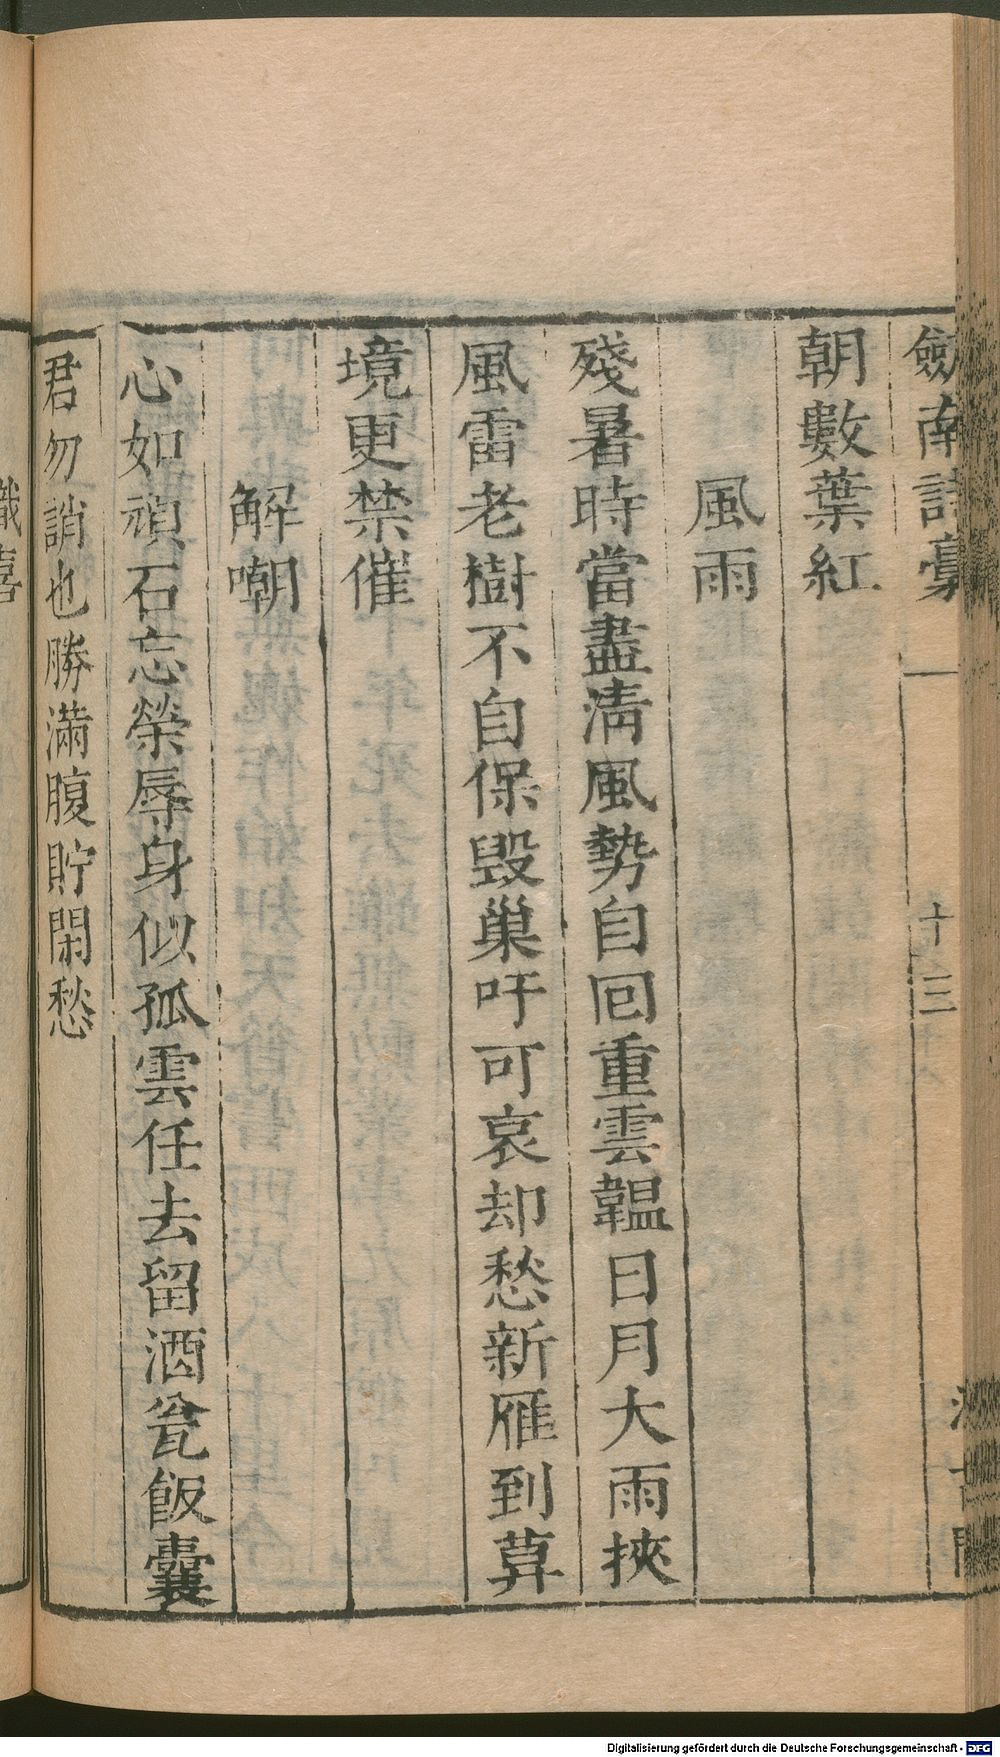 劔南詩藁
十三
朝數葉紅
風雨
殘暑時當盡淸風勢自回重雲韞日月大雨挾
風雷老樹不自保毀巢吁可哀却愁新雁到葬
境更禁催
解嘲
心如頑石忘榮辱身似孤雲任去留酒瓮飯囊
君勿誚也勝滿腹貯閑愁
Digitalisierung gefördert durch die Deutsche Forschungsgemeinschaft - DFG